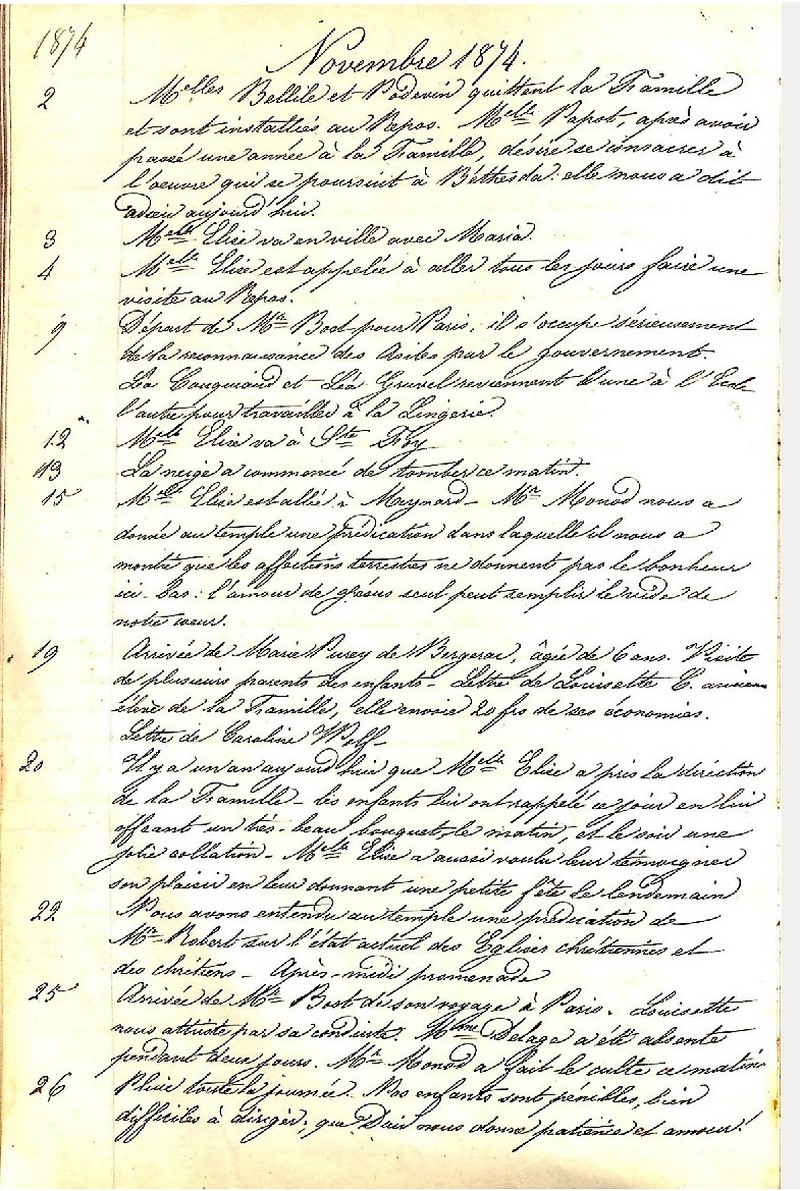 1874
Novembre 1874.
2 Melles Bellile et Podevin quittent la Famille
et sont installées au Repos. Melle Papot, après avoir
passé une année à la Famille, désire se consacrer à
l'oeuvre qui se poursuit à Béthesda: elle nous a dit
adieu aujourd'hui.
3 Melle Elise va en ville avec Maria.
4 Melle Elise est appelée à aller tous les jours faire une
visite au Repos.
9 Départ de Mr Bost pour Paris, il s'occupe sérieusement
de la reconnaissance des Asiles par le gouvernement.
Léa et Léa reviennent l'une à l'Ecole
l'autre pour travailler à la Lingerie.
12 Melle Elise va à Ste Foy
13 La neige a commencé de tomber ce matin.
15 Melle Elise est allée à Meynard - Mr Monod nous a
donné au temple une prédication dans laquelle il nous a
montré que les affections terrestres ne donnent pas le bonheur
ici-bas: l'amour de Jésus seul peut remplir le vide de
notre coeur.
19 Arrivée de Marie Purey de Bergerac, âgée de 6 ans. Visite
de plusieurs parents des enfants - Lettre de Louisette C. ancienne
élève de la Famille, elle envoie 20 frs de ses économies.
Lettre de Caroline Wolff -
20 Il y a un an aujourd'hui que Melle Elise a pris la direction
de la Famille - les enfants lui ont rappelé ce jour en lui
offrant un très-beau bouquet, le matin, et le soir une
jolie collation - Melle Elise a aussi voulu leur témoigner
son plaisir en leur donnant une petite fête le lendemain
22 Nous avons entendu au temple une prédication de
Mr Robert sur l'état actuel des Eglises chrétiennes et
des chrétiens - Après-midi promenade
25 Arrivée de Mr Bost de son voyage à Paris. Louisette
nous attriste par sa conduite. Mme Delage a été absente
pendant deux jours. Mr Monod a fait le culte ce matin
26 Pluie toute la journée. Nos enfants sont pénibles, bien
difficiles à diriger; que Dieu nous donne patience et amour!